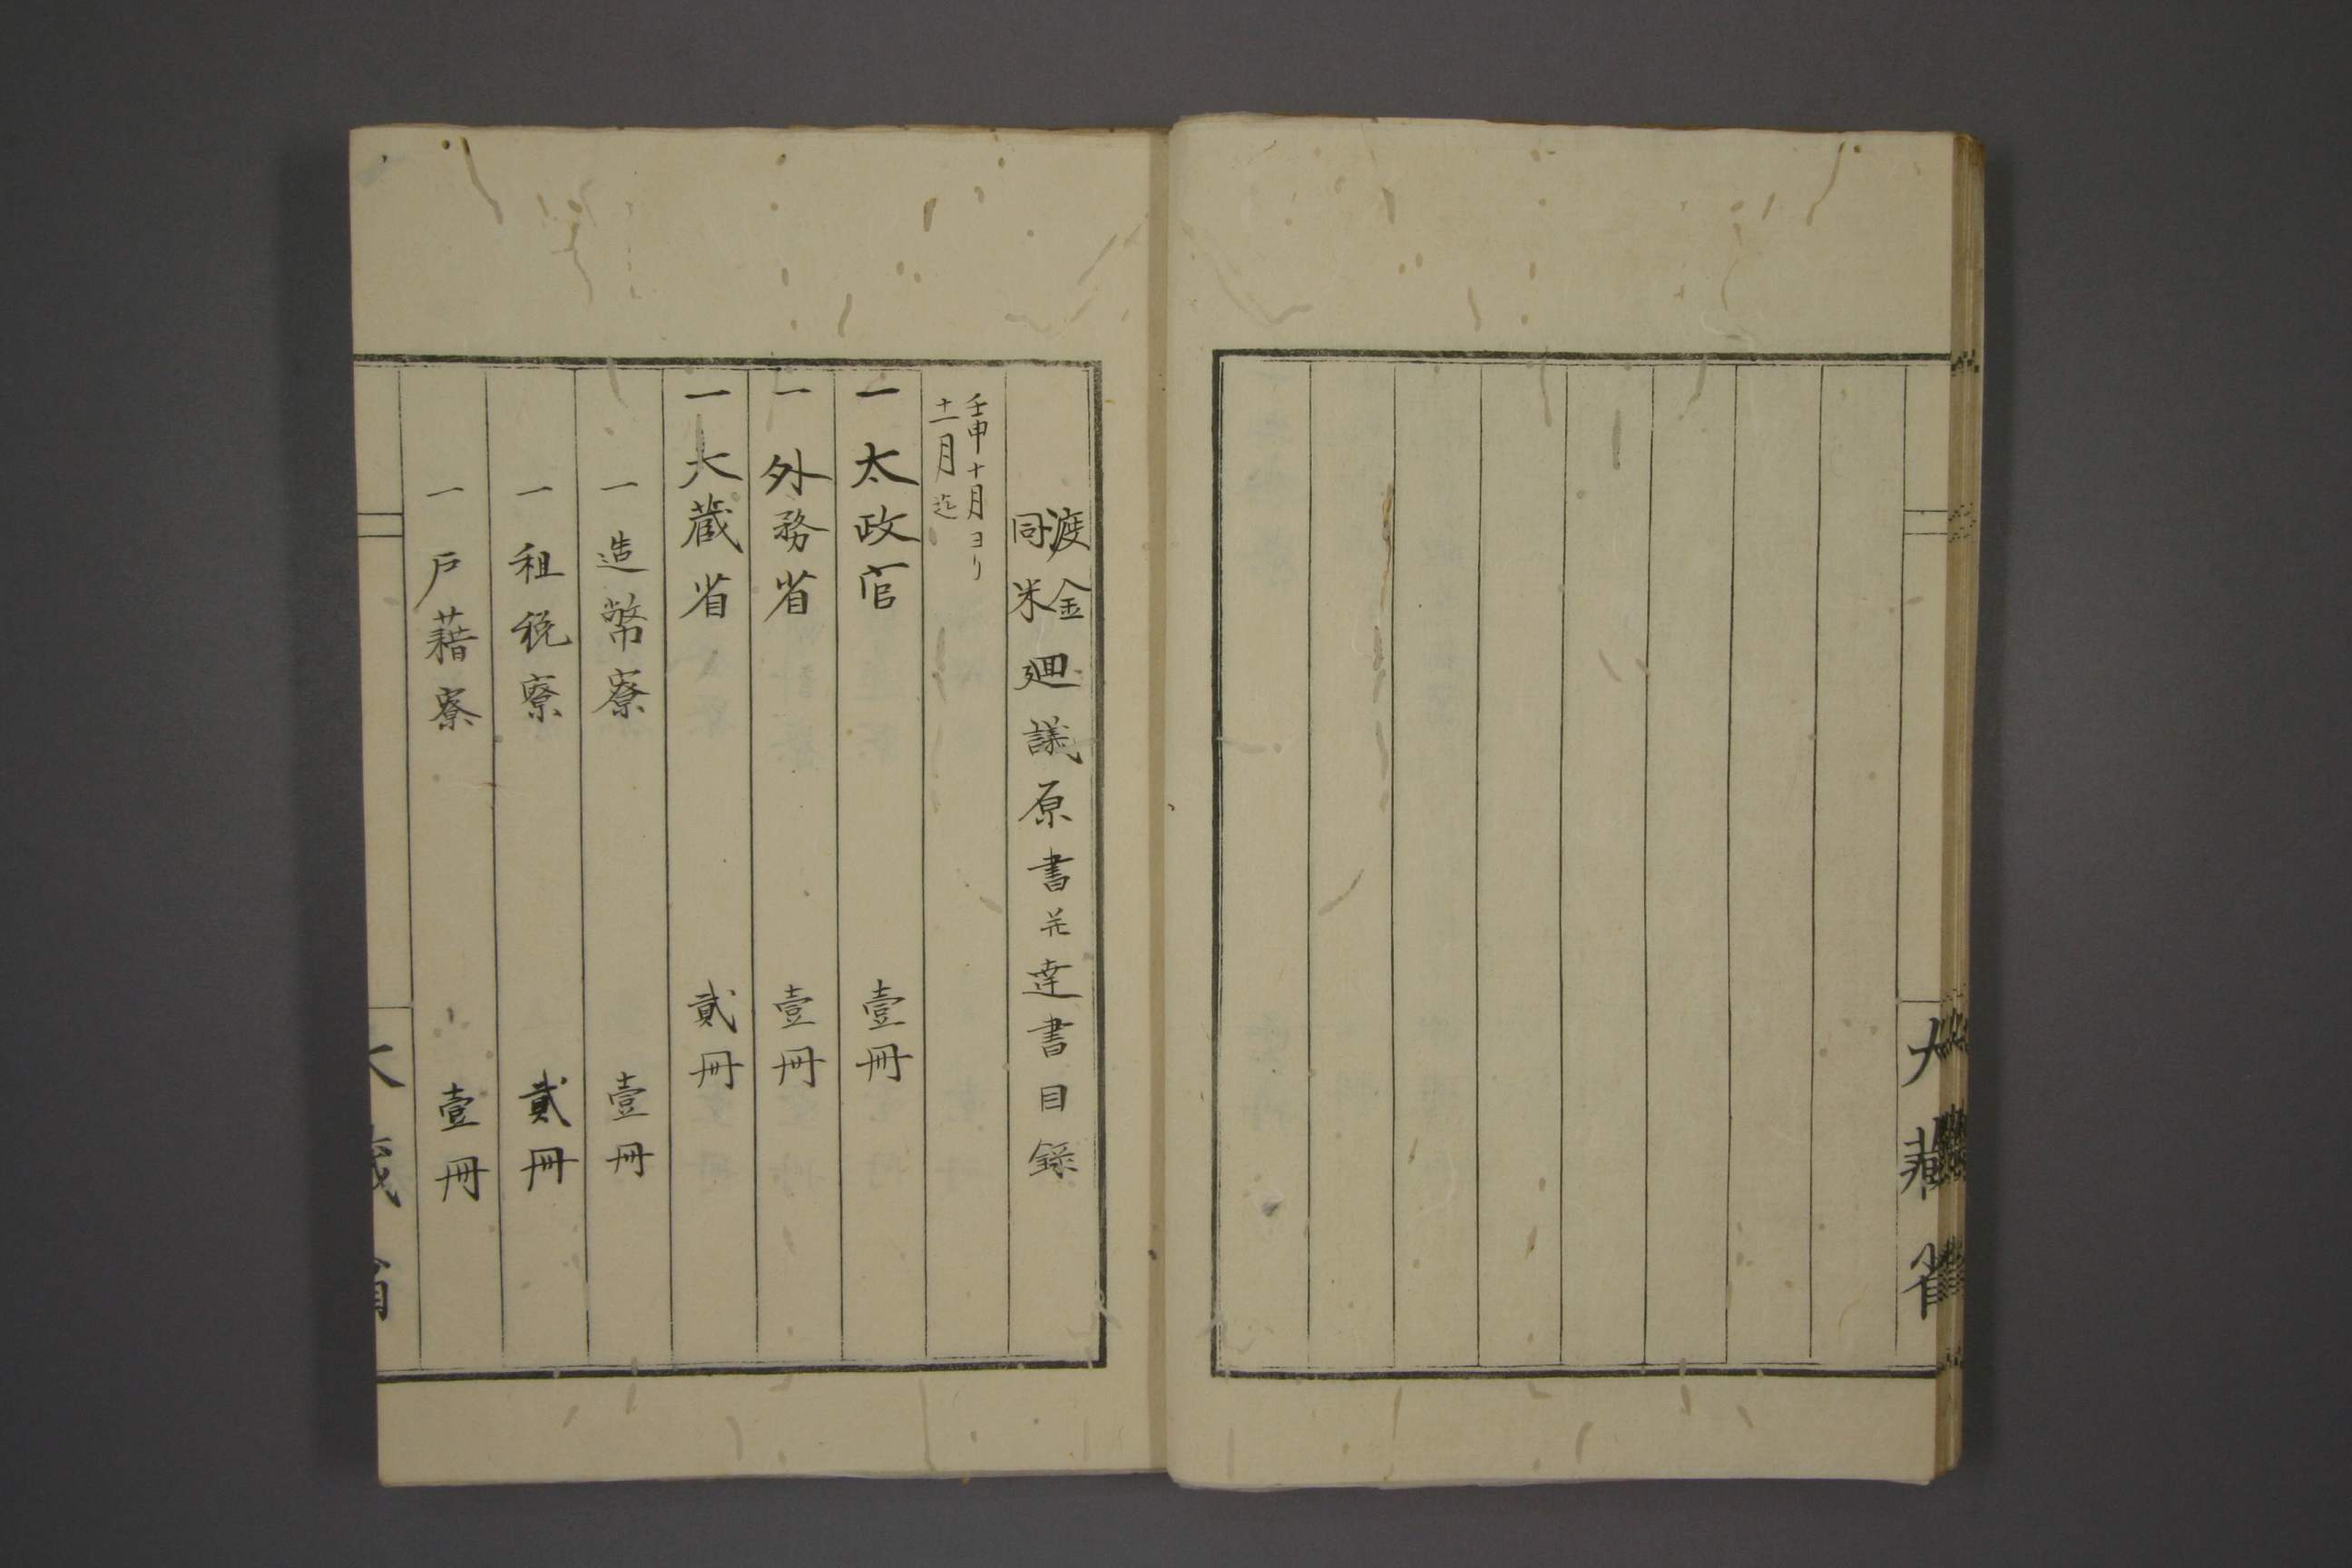 大藏省
渡金
同米
廻議原書并達書目録
壬申十月ヨリ
十二月迄
一太政官 壹冊
一外務省 壹冊
一大蔵省 貳冊
一造幣寮 壹冊
一租税寮 貳冊
一戸藉寮 壹冊
大蔵省